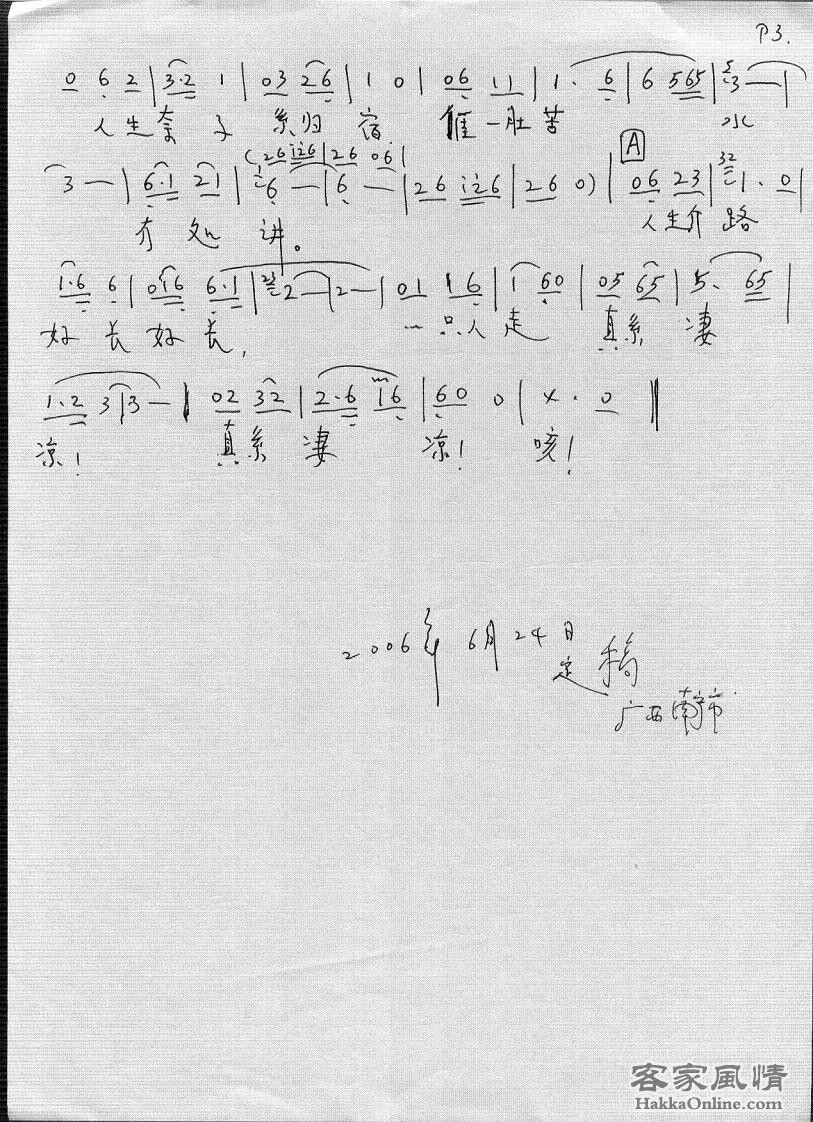 P3.
0 6 2 | 3·2 1 | 03 26 | 1 0 | 06 11 | 1· 6 | 6 565 | 3 — |
人生奈子 系归宿 𠊎一肚苦 水
(26 i26 | 26 06 |
3 — | 6·1 21 | 6 — | 6 — | 26 i26 | 26 0) | 06 23 | 1· 0 |
A
冇处讲。 人生介路
1·6 6 | 016 6·1 | 2 — | 2 — | 01 16 | 1 60 | 05 65 | 5· 65 |
好长好长, 一只人走 真系凄
1·2 3 | 3 — | 02 32 | 2·6 16 | 60 0 | x· 0 ‖
凉! 真系凄凉! 咳!
2006年6月24日
定稿
广西南宁市
客家風情
HakkaOnline.com